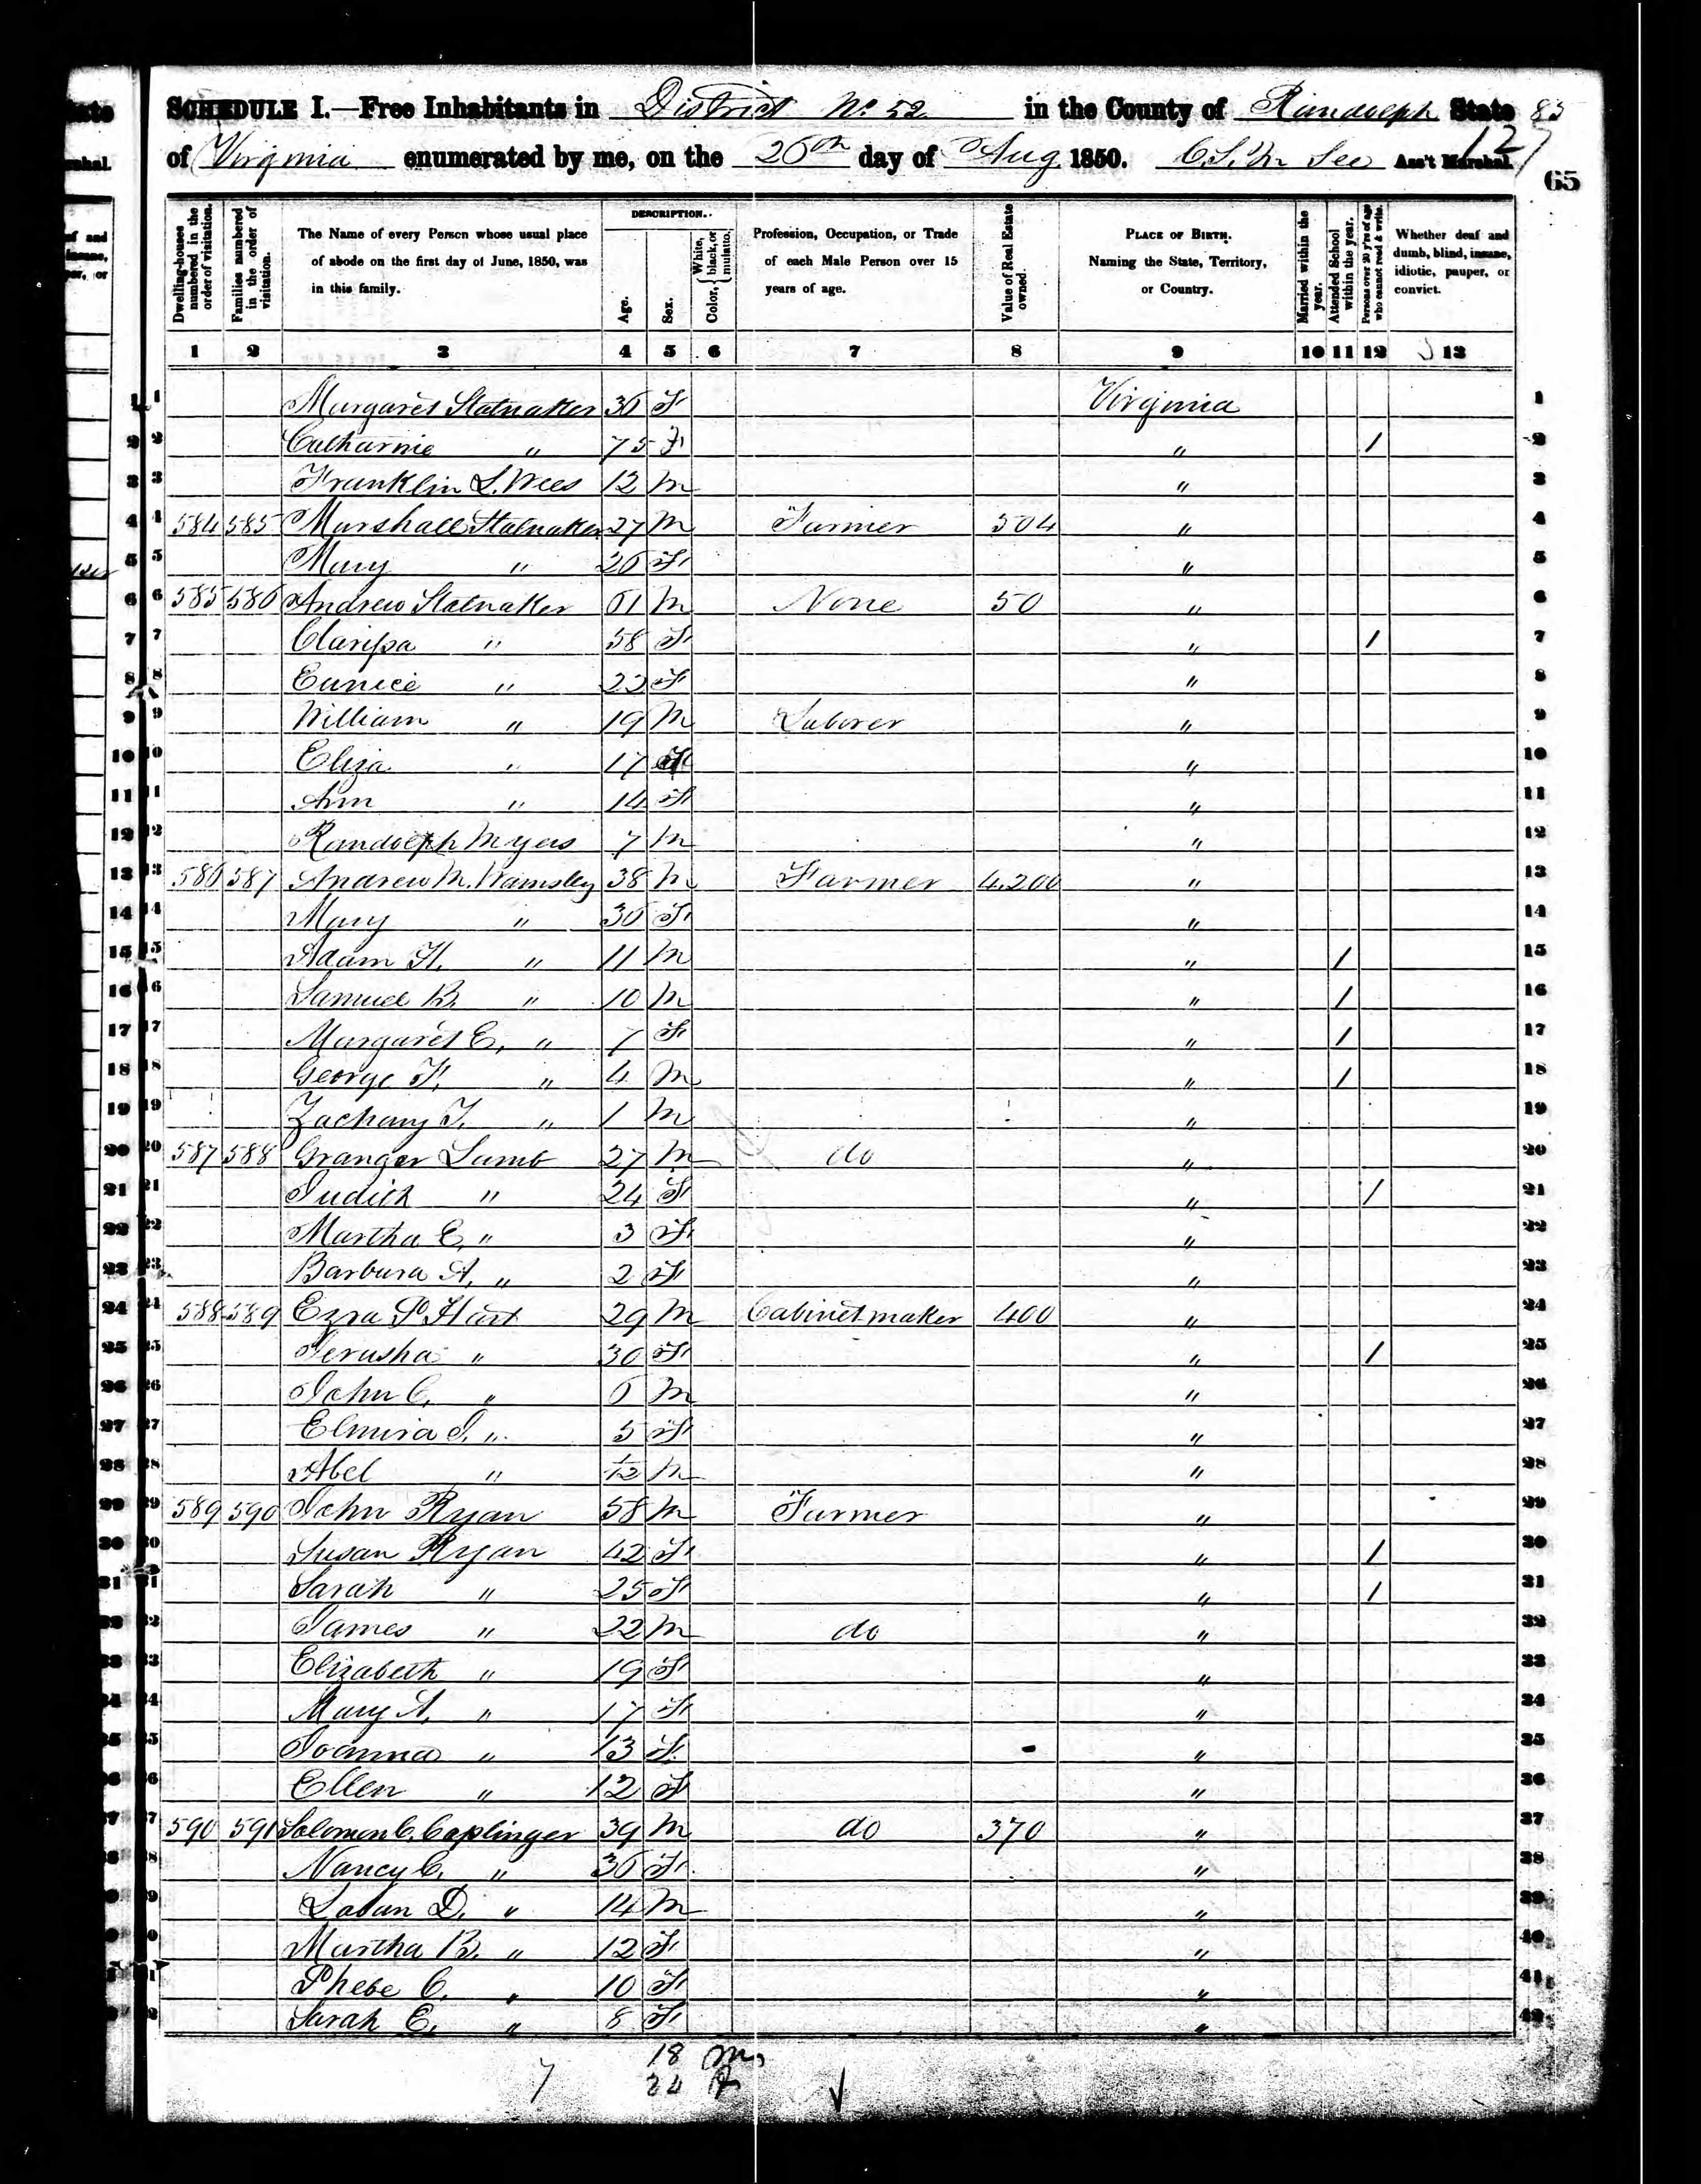 SCHEDULE I.—Free Inhabitants in District No. 52 in the County of Randolph State 83
of Virginia enumerated by me, on the 26th day of Aug 1850. Ass't Marshal. 127
65
DESCRIPTION.
Dwelling-houses numbered in the order of visitation.
Families numbered in the order of visitation.
The Name of every Person whose usual place of abode on the first day of June, 1850, was in this family.
Age.
Sex.
Color, { White, black, or mulatto.
Profession, Occupation, or Trade of each Male Person over 15 years of age.
Value of Real Estate owned.
PLACE OF BIRTH. Naming the State, Territory, or Country.
Married within the year.
Attended School within the year.
Persons over 20 y'rs of age who cannot read & write.
Whether deaf and dumb, blind, insane, idiotic, pauper, or convict.
1 2 3 4 5 6 7 8 9 10 11 12 13
1 Margaret Stalnaker 36 F Virginia 1
2 Catharine " 75 F " / 2
3 Franklin L. Wees 12 M " 3
4 584 585 Marshall Stalnaker 27 M Farmer 504 " 4
5 Mary " 26 F " 5
6 585 586 Andrew Stalnaker 61 M None 50 " 6
7 Clarissa " 58 F " / 7
8 Eunice " 22 F " 8
9 William " 19 M Laborer " 9
10 Eliza " 17 F " 10
11 Ann " 14 F " 11
12 Randolph Myers 7 M " 12
13 586 587 Andrew M. Wamsley 38 M Farmer 4,200 " 13
14 Mary " 36 F " 14
15 Adam H. " 11 M " / 15
16 Samuel B. " 10 M " / 16
17 Margaret E. " 7 F " / 17
18 George F. " 4 M " / 18
19 Zachary T. " 1 M " 19
20 587 588 Granger Lamb 27 M do " 20
21 Judith " 24 F " / 21
22 Martha E. " 3 F " 22
23 Barbara A. " 2 F " 23
24 588 589 Ezra P. Hart 29 M Cabinet maker 400 " 24
25 Jerusha " 30 F " / 25
26 John C. " 6 M " 26
27 Elmira J. " 5 F " 27
28 Abel " 1/12 M " 28
29 589 590 John Ryan 58 M Farmer " 29
30 Susan Ryan 42 F " / 30
31 Sarah " 25 F " / 31
32 James " 22 M do " 32
33 Elizabeth " 19 F " 33
34 Mary A. " 17 F " 34
35 Joanna " 13 F " 35
36 Ellen " 12 F " 36
37 590 591 Solomon C. Caplinger 39 M do 370 " 37
38 Nancy C. " 36 F " 38
39 Laban D. " 14 M " 39
40 Martha B. " 12 F " 40
41 Phebe C. " 10 F " 41
42 Sarah E. " 8 F " 42
18 m,
7 24 f